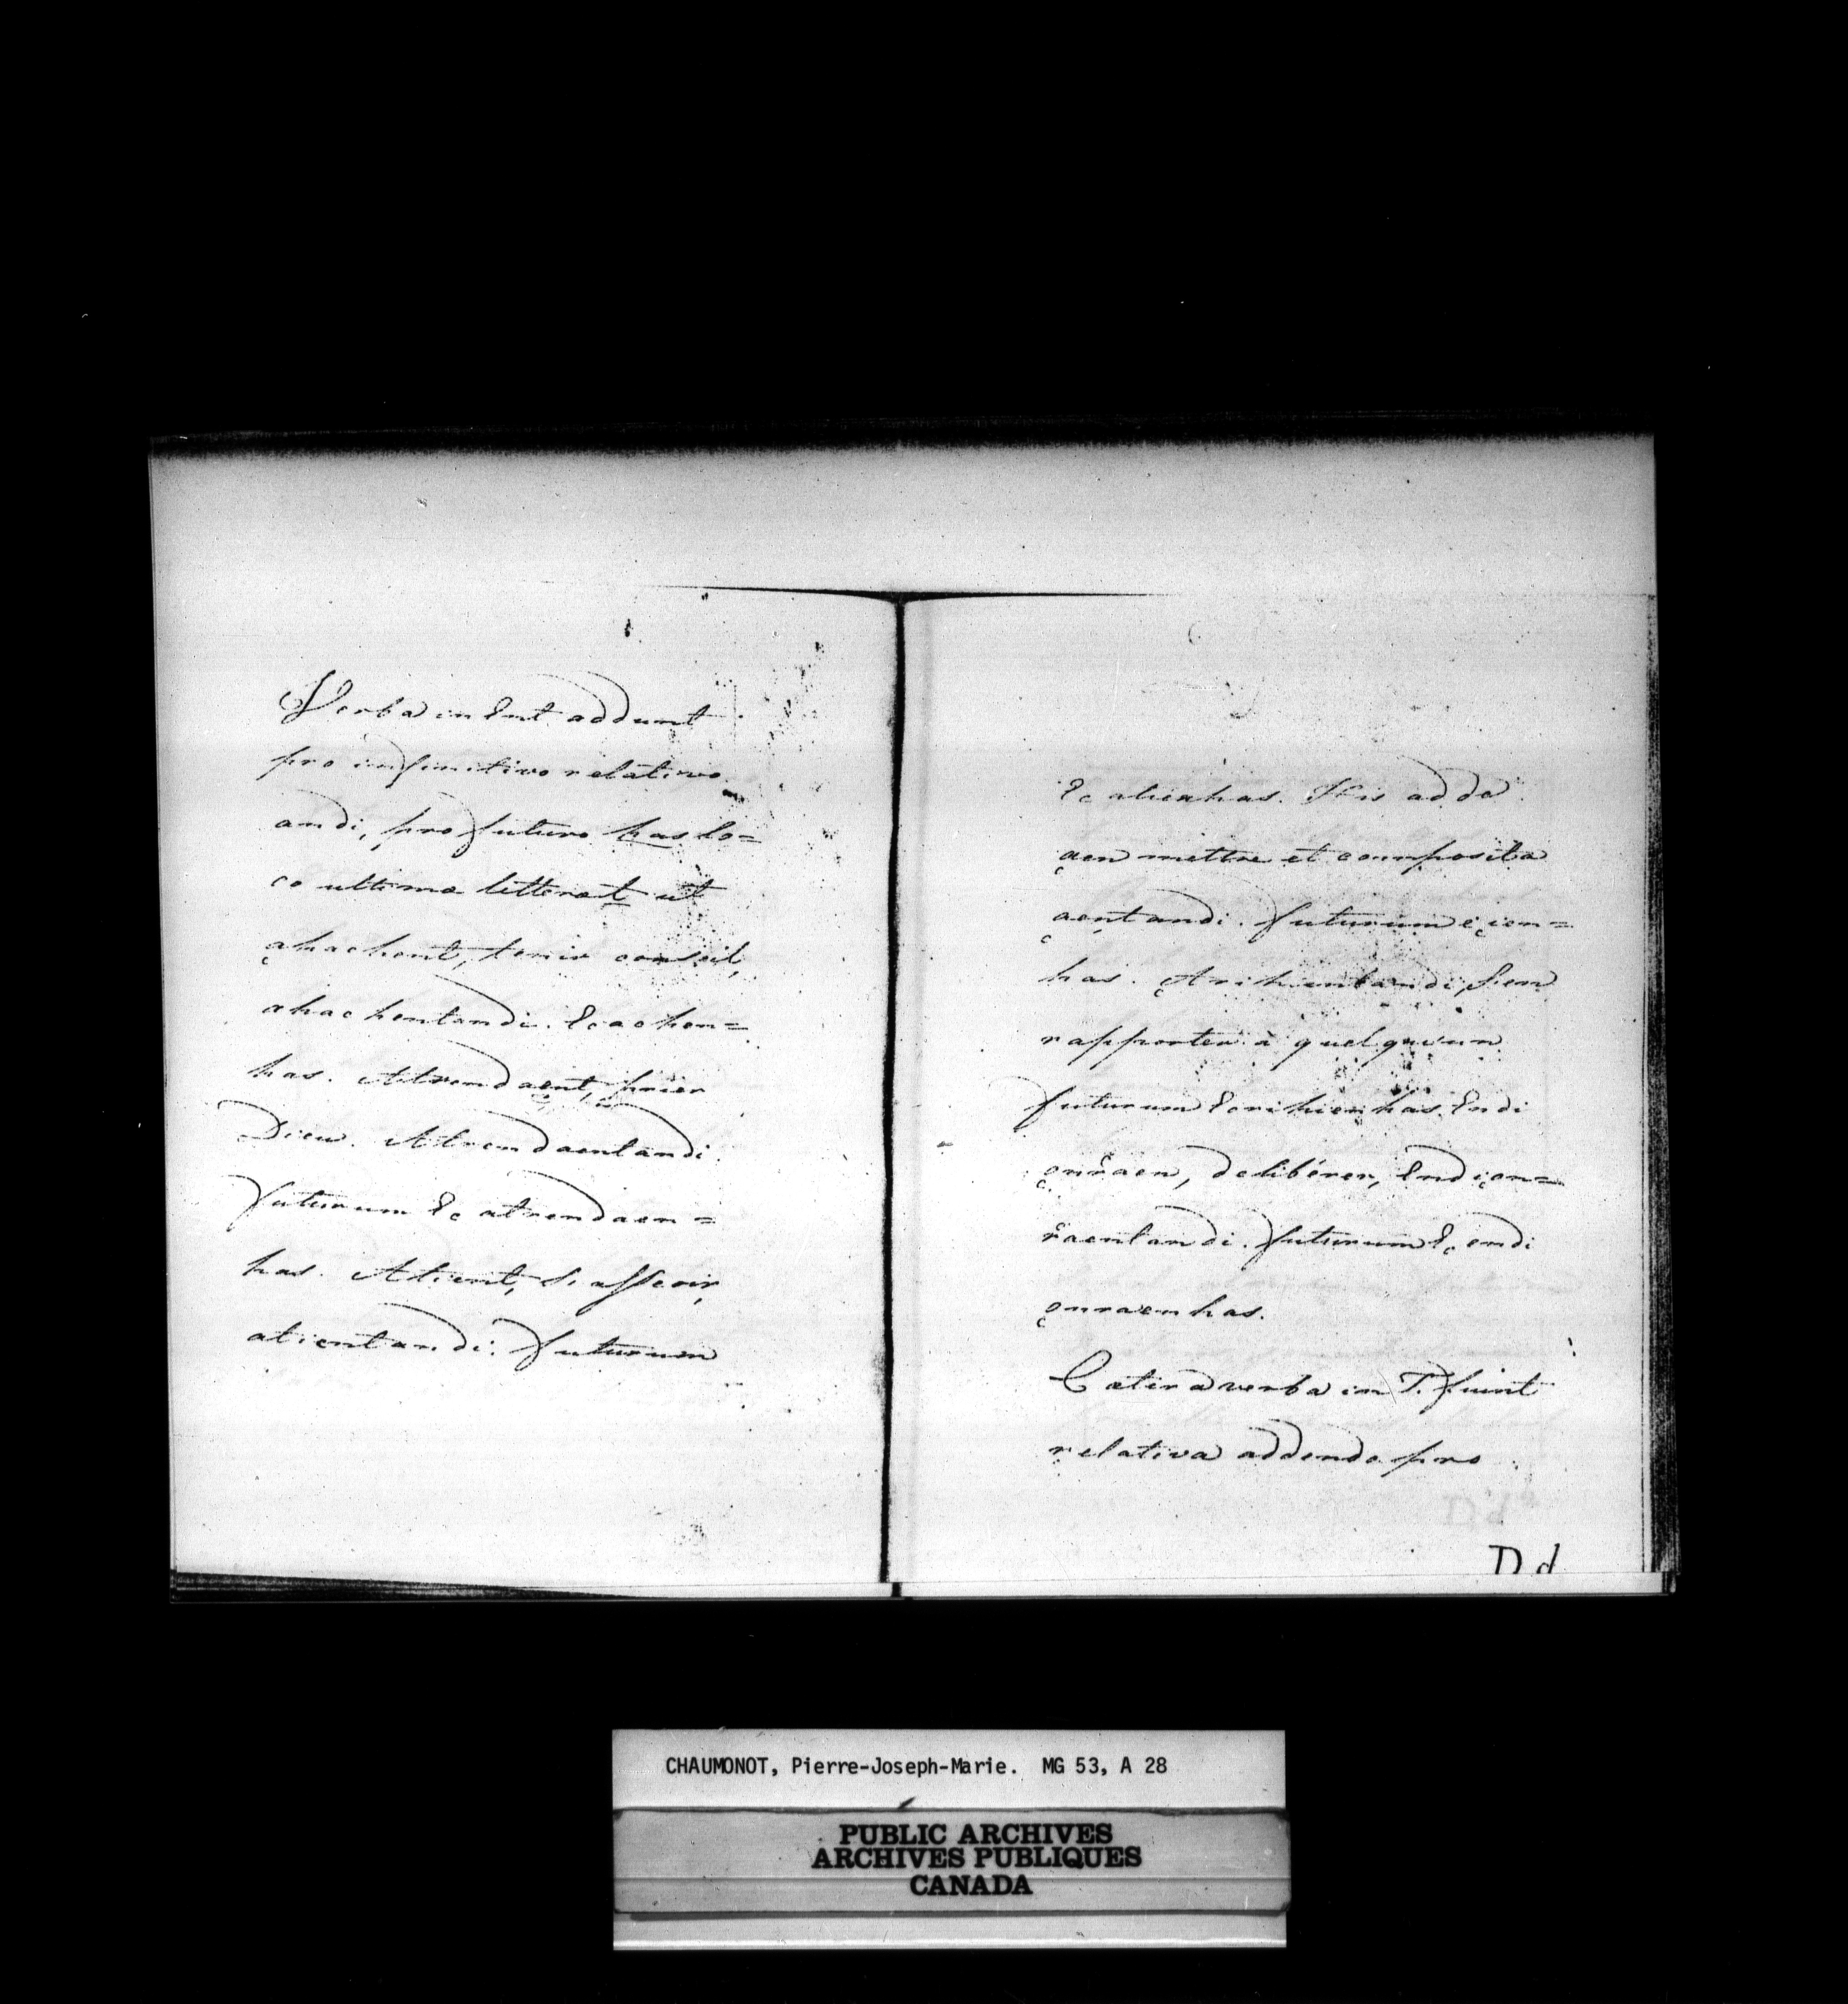 Verba in Ent addunt
pro infinitivo relativo
andi, pro futuro has lo=
co ultimæ litteræ t ut
ąhachent, tenir conseil,
ahachentandi. Ecachen=
has. Atrendaent, prier
Dieu. Atrendaentandi
futurum Ec atrendaen=
has. Atient, S'asseoir,
atientandi. futurum
Ec atienhas. His adde
ąen mettre et composita
ąentandi. futurum eçien=
has. Arihientandi, S'en
rapporter à quelqu'un
futurum Eorihienhas. Endi
ąonraen, deliberer, Endiąon=
raentandi. futurum Ec endi
ąonraenhas.
Cætera verba in T. fiunt
relativa addendo pro
Dd
CHAUMONOT, Pierre-Joseph-Marie. MG 53, A 28
PUBLIC ARCHIVES
ARCHIVES PUBLIQUES
CANADA